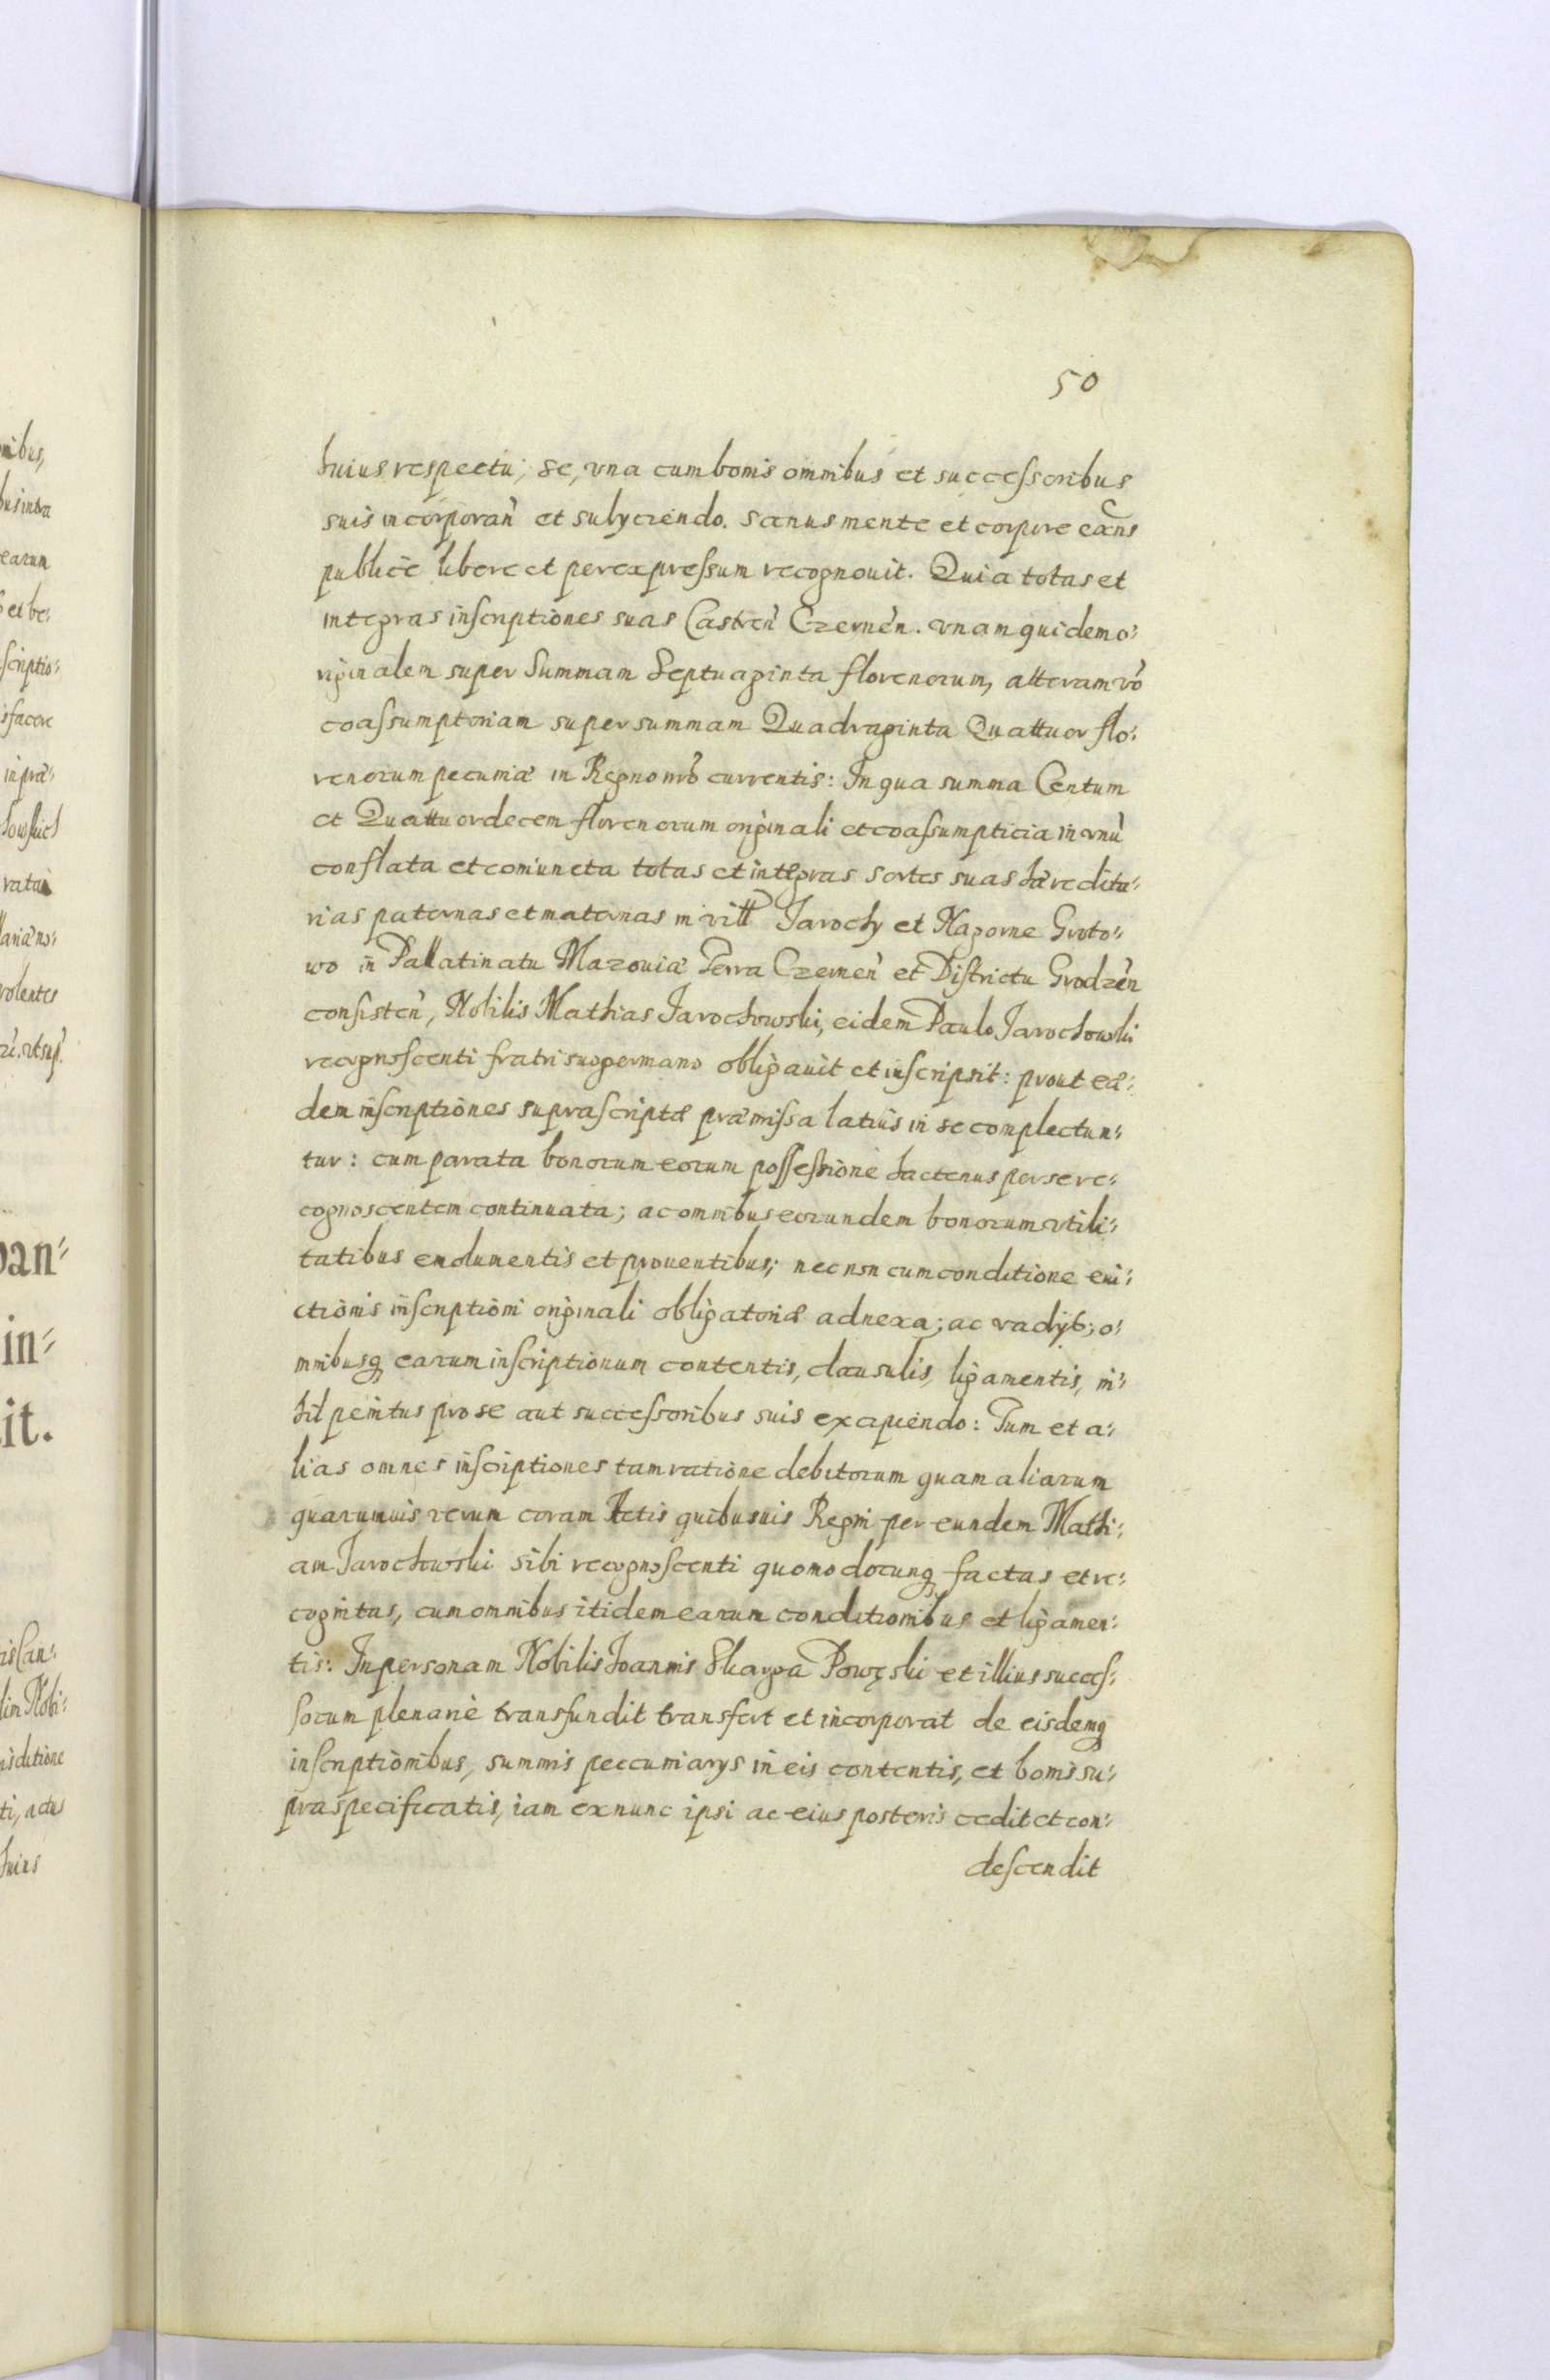 50
huius respectu; se, vna cum bonis omnibus et successoribus
suis incorporan̄ et subyciendo. Sanus mente et corpore exns
publicè libere et per expressum recognouit. Quia totas et
integras inscriptiones suas Castren̄ Czernen̄. vnam quidem o:
riginalem super Summam Septuaginta florenorum, alteram vō
coassumptoriam super summam Quadraginta Quattuor flo:
renorum pecuniæ in Regno nrō currentis: In qua summa Centum
et Quattuordecem florenorum originali et coassumpticia in vnū
conflata et coniuncta totas et integras sortes suas hæredita:
rias paternas et maternas in vill Jarochy et Nagorne Groto:
wo in Pallatinatu Mazouiæ Terra Czernen̄ et Districtu Grodzen̄
consisten̄, Nobilis Mathias Jarochowski, eidem Paulo Jarochowski
recognoscenti fratri suo germano obligauit et inscripsit: prout eæ:
dem inscriptiones suprascriptæ præmissa latiùs in se complectun:
tur: cum parata bonorum eorum possessione hactenus per se re:
cognoscentem continuata; ac omnibus eorundem bonorum vtili:
tatibus emolumentis et prouentibus; necnon cum conditione eui:
ctionis inscriptioni originali obligatoriæ adnexa; ac vadijs; o:
mnibusq earum inscriptionum contentis, clausulis, ligamentis, ni:
hil penitus pro se aut successoribus suis excipiendo: Tum et a:
lias omnes inscriptiones tam ratione debitorum quam aliarum
quarumuis rerum coram Actis quibusuis Regni per eundem Mathi:
am Jarochowski sibi recognoscenti quomodocunq factas et re:
cognitas, cum omnibus itidem earum conditionibus et ligamen:
tis: In personam Nobilis Joannis Skarga Powęski et illius succes:
sorum plenariè transfundit transfert et incorporat de eisdemq
inscriptionibus, summis peccuniarys in eis contentis, et bonis su:
praspecificatis, iam ex nunc ipsi ac eius posteris cedit et con:
descendit